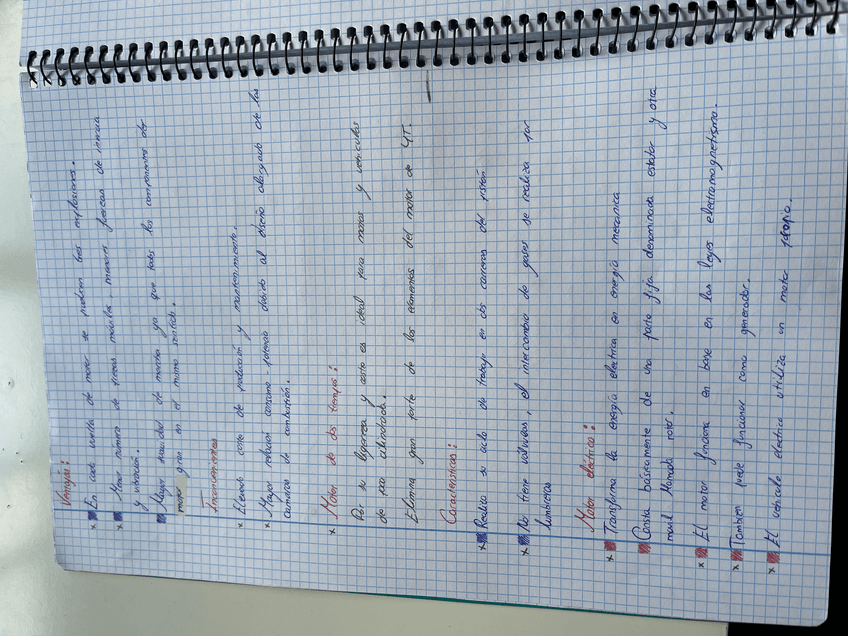 Ventajas:
x En cada vuelta de motor se producen tres explosiones.
x Menor número de piezas móviles, menores fuerzas de inercia
y vibración.
Mayor suavidad de marcha ya que todos los componentes del
motor giran en el mismo sentido.
Inconvenientes
x Elevado coste de producción y mantenimiento.
x Mayor relación consumo-potencia debido al diseño alargado de las
camaras de combustión.
x Motor de dos tiempos:
Por su ligereza y coste es ideal para motos y vehiculos
de poca cilindrada.
Elimina gran parte de los elementos del motor de 4T.
Caracteristicas:
x Realiza su ciclo de trabajo en dos carreras del pistón
x No tiene válvulas, el intercambio de gases se realiza por
lumbreras
Motor eléctrico:
x Transforma la energía electrica en energía mecanica
Consta básicamente de una parte fija denominada estator y otra
movil llamada rotor.
x El motor funciona en base en las leyes electromagnetismo.
x Tambien puede funcionar como generador.
x El vehiculo electrico utiliza un motor propio.